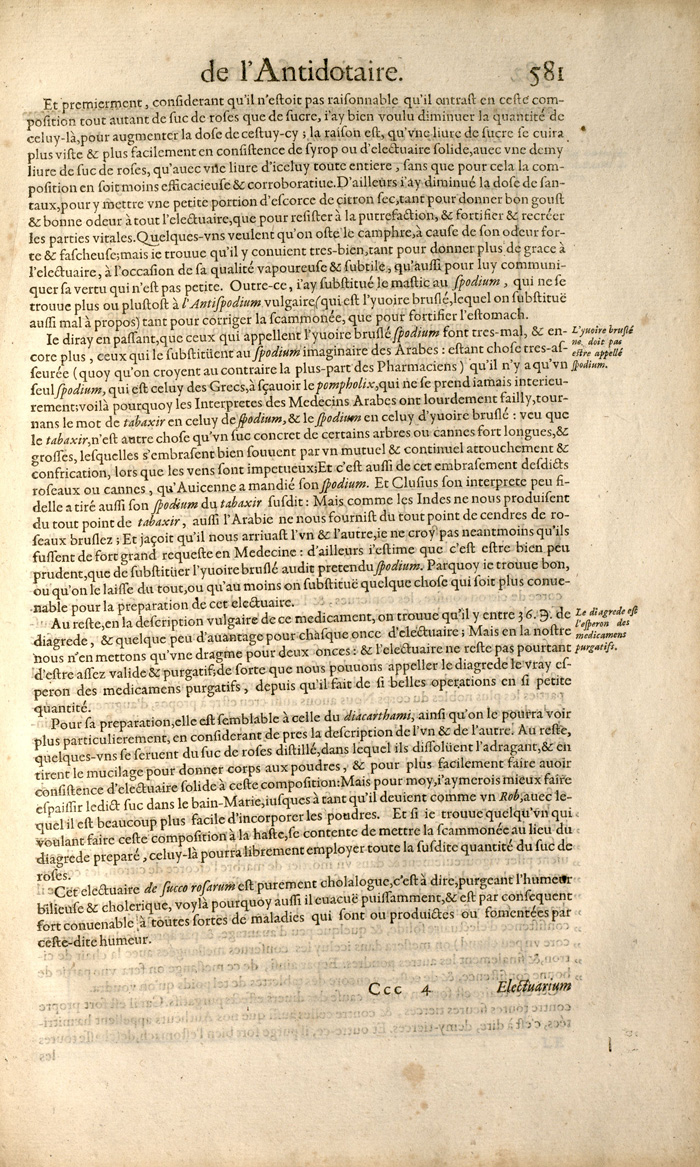 de l'Antidotaire. 581
Et premierment, considerant qu'il n'estoit pas raisonnable qu'il entrast en ceste com-
position tout autant de suc de roses que de sucre, i'ay bien voulu diminuer la quantité de
celuy-là, pour augmenter la dose de cestuy-cy; la raison est, qu'vne liure de sucre se cuira
plus viste & plus facilement en consistence de syrop ou d'electuaire solide, auec vne demy
liure de suc de roses, qu'auec vne liure d'iceluy toute entiere, sans que pour cela la com-
position en soit moins efficacieuse & corroboratiue. D'ailleurs i'ay diminué la dose de san-
taux, pour y mettre vne petite portion d'escorce de citron sec, tant pour donner bon goust
& bonne odeur à tout l'electuaire, que pour resister à la putrefaction, & fortifier & recréer
les parties vitales. Quelques-vns veulent qu'on oste le camphre, à cause de son odeur for-
te & fascheuse; mais ie trouue qu'il y conuient tres-bien, tant pour donner plus de grace à
l'electuaire, à l'occasion de sa qualité vapoureuse & subtile, qu'aussi pour luy communi-
quer sa vertu qui n'est pas petite. Outre-ce, i'ay substitué le mastic au spodium, qui ne se
trouue plus ou plustost à l'Antispodium vulgaire (qui est l'yuoire bruslé, lequel on substituë
aussi mal à propos) tant pour corriger la scammonée, que pour fortifier l'estomach.
Ie diray en passant, que ceux qui appellent l'yuoire bruslé spodium font tres-mal, & en-
core plus, ceux qui le substituënt au spodium imaginaire des Arabes: estant chose tres-as-
seurée (quoy qu'on croyent au contraire la plus-part des Pharmaciens) qu'il n'y a qu'vn
seul spodium, qui est celuy des Grecs, à sçauoir le pompholix, qui ne se prend iamais interieu-
rement: voilà pourquoy les Interpretes des Medecins Arabes ont lourdement failly, tour-
nans le mot de tabaxir en celuy de spodium, & le spodium en celuy d'yuoire bruslé: veu que
le tabaxir, n'est autre chose qu'vn suc concret de certains arbres ou cannes fort longues, &
grosses, lesquelles s'embrasent bien souuent par vn mutuel & continuel attouchement &
confrication, lors que les vens sont impetueux; Et c'est aussi de cet embrasement desdicts
roseaux ou cannes, qu'Auicenne a mandié son spodium. Et Clusius son interprete peu fi-
delle a tiré aussi son spodium du tabaxir susdit: Mais comme les Indes ne nous produisent
du tout point de tabaxir, aussi l'Arabie ne nous fournist du tout point de cendres de ro-
seaux bruslez; Et jaçoit qu'il nous arriuast l'vn & l'autre, ie ne croy pas neantmoins qu'ils
fussent de fort grand requeste en Medecine: d'ailleurs i'estime que c'est estre bien peu
prudent, que de substituer l'yuoire bruslé audit pretendu spodium. Parquoy ie trouue bon,
ou qu'on le laisse du tout, ou qu'au moins on substituë quelque chose qui soit plus conue-
nable pour la preparation de cet electuaire.
L'yuoire bruslé
ne doit pas
estre appellé
spodium.
Au reste, en la description vulgaire de ce medicament, on trouue qu'il y entre 36. ℈. de
diagrede, & quelque peu d'auantage pour chasque once d'electuaire; Mais en la nostre
nous n'en mettons qu'vne dragme pour deux onces: & l'electuaire ne reste pas pourtant
d'estre assez valide & purgatif; de sorte que nous pouuons appeller le diagrede le vray es-
peron des medicamens purgatifs, depuis qu'il fait de si belles operations en si petite
quantité.
Le diagrede est
l'esperon des
medicamens
purgatifs.
Pour sa preparation, elle est semblable à celle du diacarthami, ainsi qu'on le pourra voir
plus particulierement, en considerant de pres la description de l'vn & de l'autre. Au reste,
quelques-vns se seruent du suc de roses distillé, dans lequel ils dissoluënt l'adragant, & en
tirent le mucilage pour donner corps aux poudres, & pour plus facilement faire auoir
consistence d'electuaire solide à ceste composition: Mais pour moy, i'aymerois mieux faire
espaissir ledict suc dans le bain-Marie, iusques à tant qu'il deuient comme vn Rob, auec le-
quel il est beaucoup plus facile d'incorporer les poudres. Et si ie trouue quelqu'vn qui
voulant faire ceste composition à la haste, se contente de mettre la scammonée au lieu du
diagrede preparé, celuy-là pourra librement employer toute la susdite quantité du suc de
roses.
Cet electuaire de succo rosarum est purement cholalogue, c'est à dire, purgeant l'humeur
bilieuse & cholerique, voylà pourquoy aussi il euacuë puissamment, & est par consequent
fort conuenable à toutes sortes de maladies qui sont ou produictes ou fomentées par
ceste-dite humeur.
Ccc 4 Electuarium